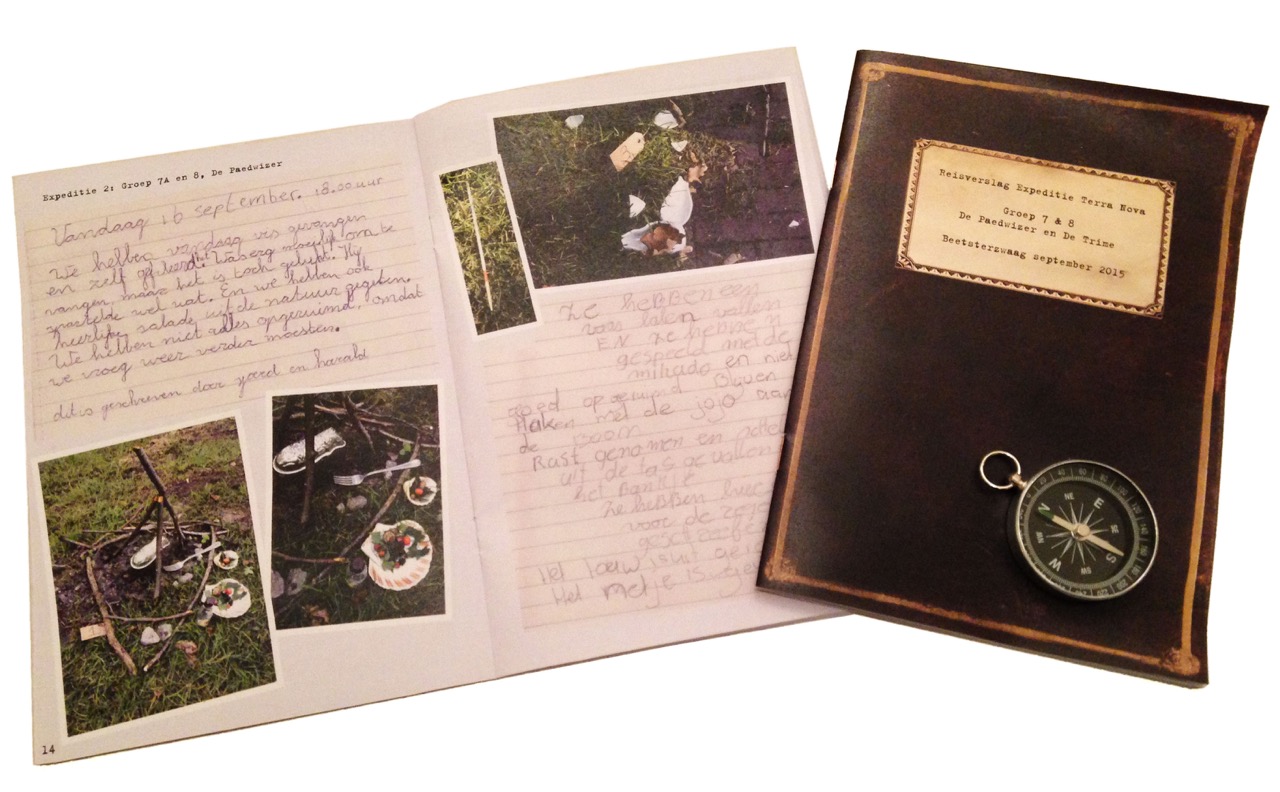 Expeditie 2: Groep 7A en 8, De Paedwizer
Vandaag 16 september. 18.00 uur
We hebben vandaag vis gevangen
en zelf Het was erg moeilijk om te
vangen, maar het is toch gelukt. Hij
spartelde wel wat. En we hebben ook
heerlijke salade uit de natuur gegeten.
We hebben niet alles opgeruimd, omdat
we vroeg weer verder moesten.
dit is geschreven door sjoerd en harald
14
Ze hebben een
vaas laten vallen
EN ze hebben
gespeeld met de
mikado en niet
goed opgeruimd Blijven
Haken met de jojo aan
de Boom
Rust genomen en
uit de tas gevallen
het Bankje
ze hebben hier
voor de
Het touw is
Het
Reisverslag Expeditie Terra Nova
Groep 7 & 8
De Paedwizer en De Trime
Beetsterzwaag september 2015
N
NE
E
SE
S
SW
W
NW